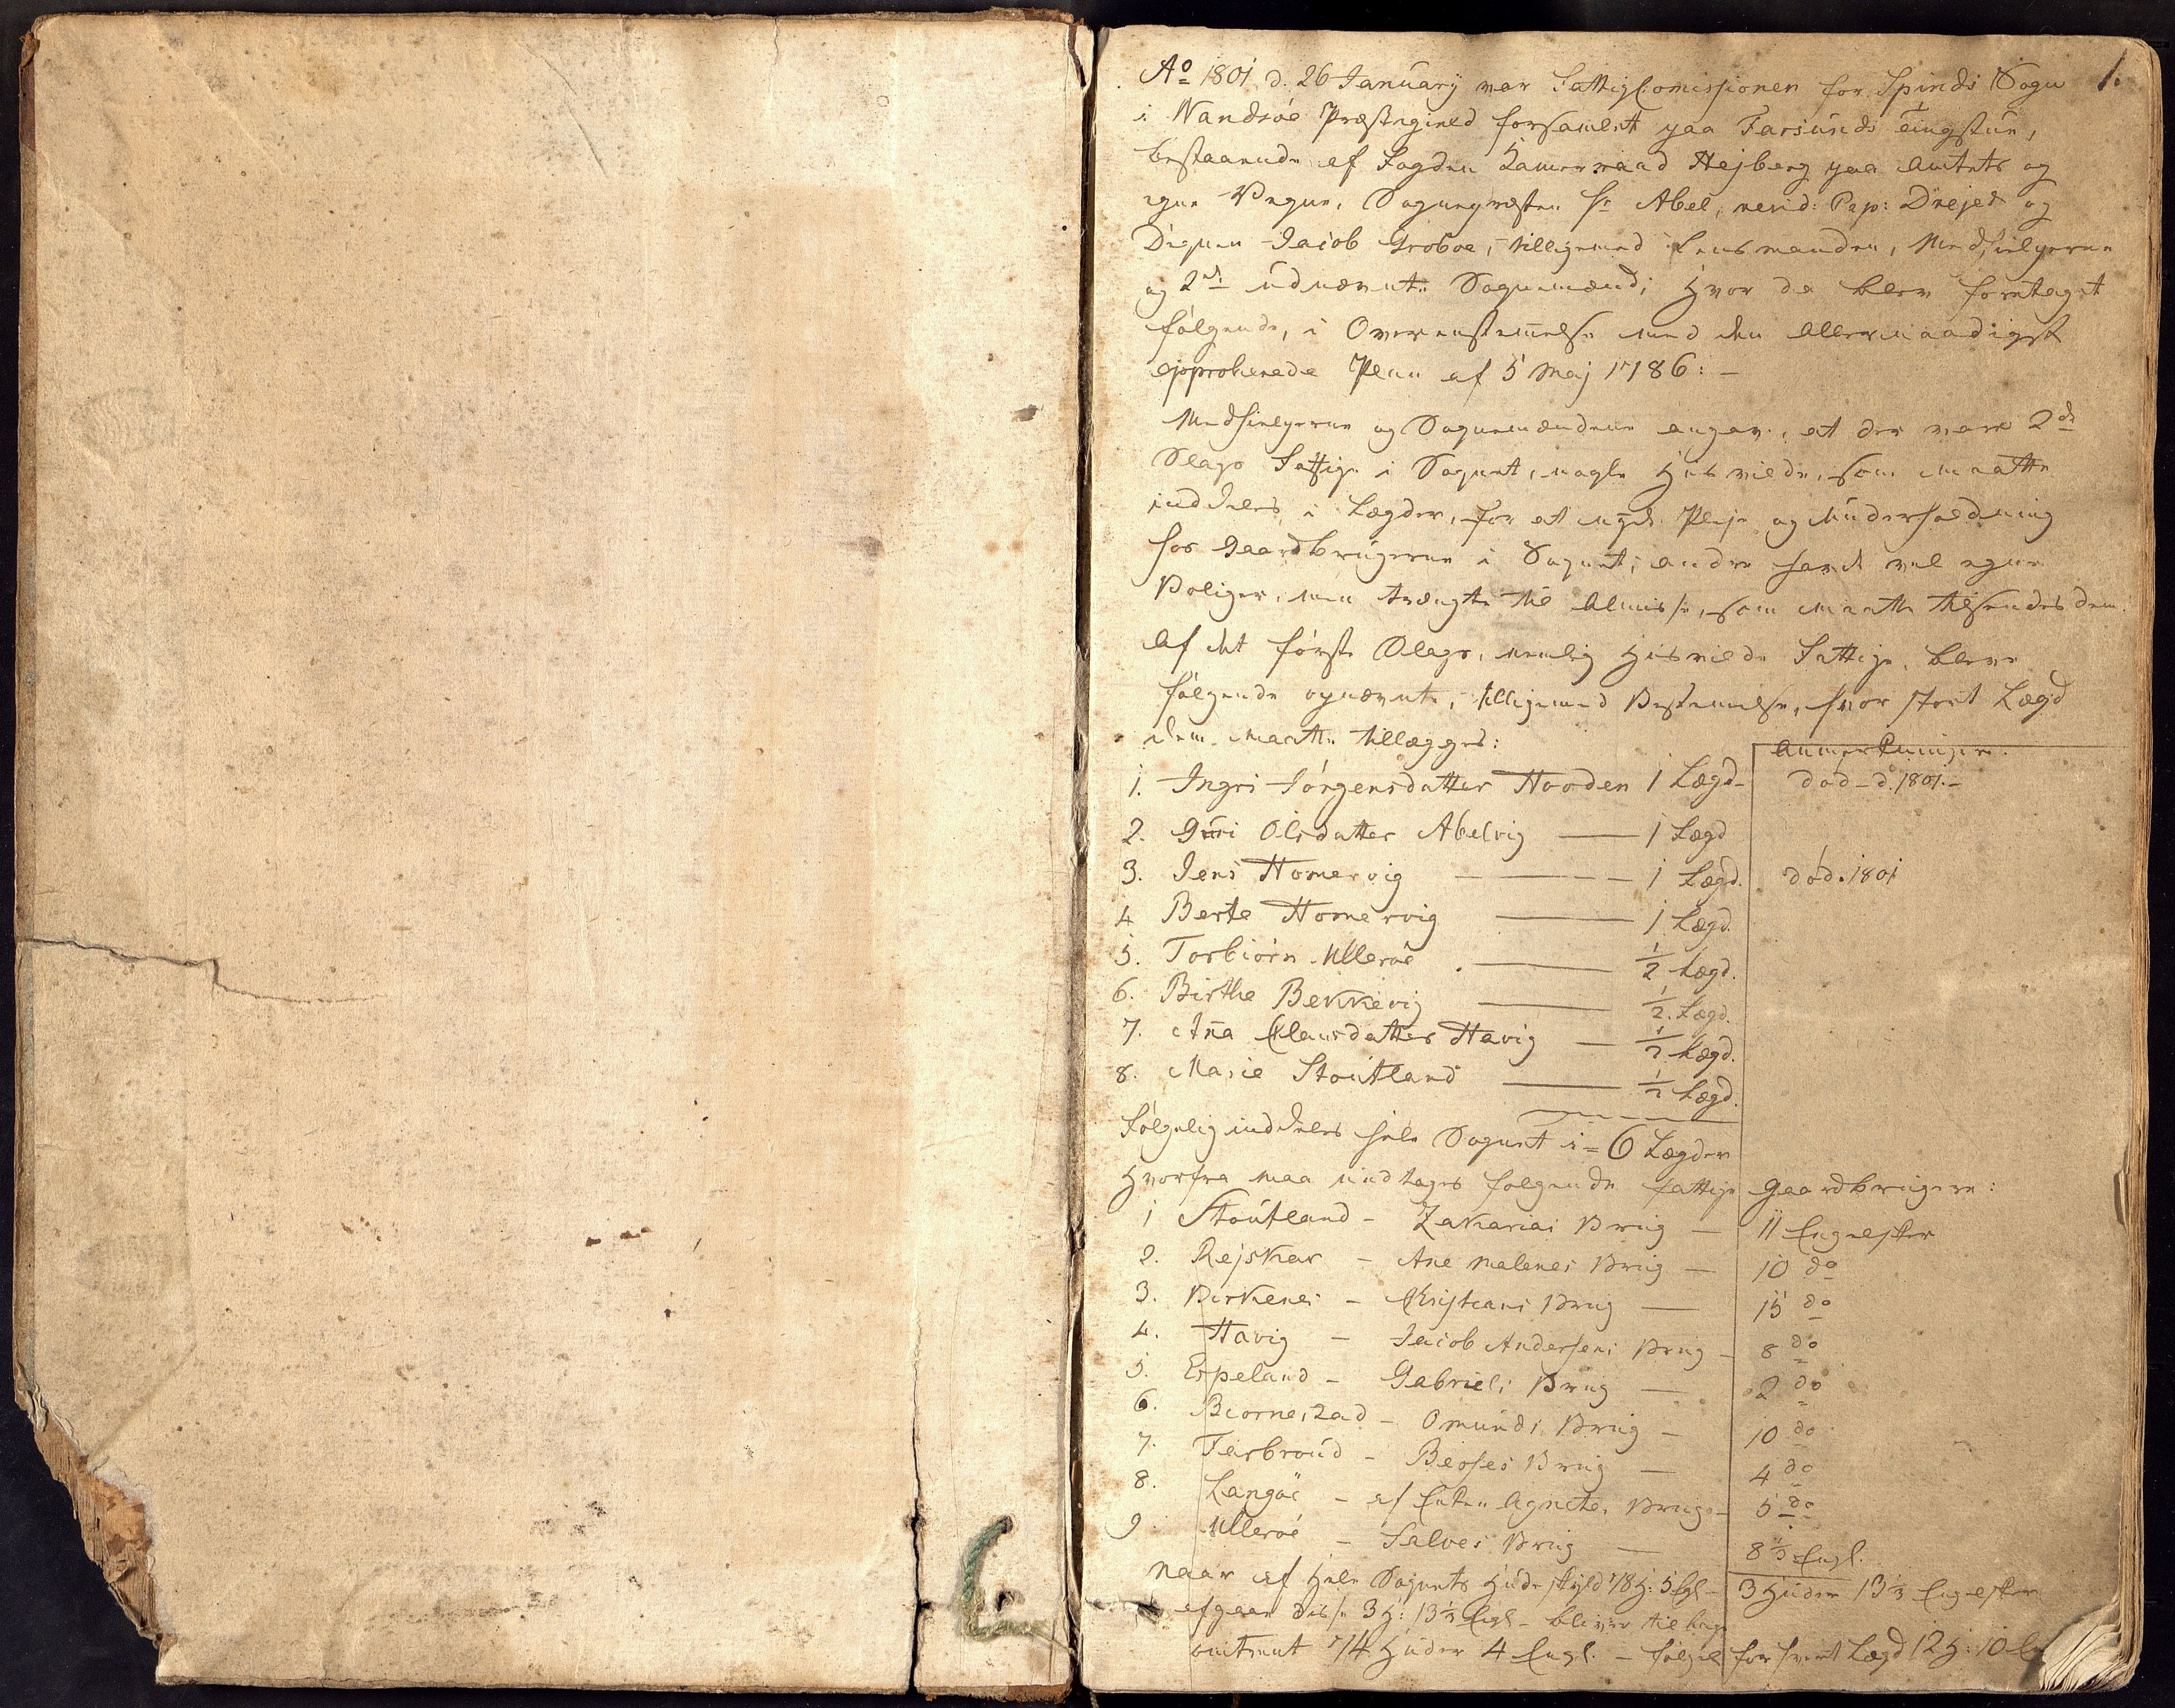 1.
Ao 1801 d. 26 Januarij var Fattig Comissionen for Spinds Sogn
i Wandsøe Præstegield forsamlet paa Farsunds Tingstue,
bestaaende af Fogden Kamerraad Hejberg paa Amtets og
egne Vegne, Sognepræsten Hr Abel, resid: Cap: Drejer og
Degnen Jacob Groboe, tilligemed Lensmanden, Medhielperne
og 2de udnævnte Sognemænd; Hvor da blev foretaget
følgende, i Overensstemmelse med den allernaadigst
approberede Plan af 5 Maj 1786: -
Medhielperne og Sognemændene angav, at der vare 2de
Slags Fattige i Sognet, nogle Husvilde, som maatte
inddeles i Lægder, for at nyde Pleje og Underholdning
hos Gaardbrugerne i Sognet; andre havde vel egne
Boliger, men trængte til Almisse, som maatte tilsendes dem.
Af det første Slags, nemlig Husvilde Fattige, bleve
følgende opnævnte, tilligemed Bestemmelse, hvor stort Lægd
dem maatte tillægges:
Anmerkninger.
1. Ingri Jörgensdatter Hooden 1 Lægd - død - d. 1801. -
2. Guri Olsdatter Abelvig — 1 Lægd
3. Jens Homervig — 1 Lægd. død. 1801
4 Berte Homervig — 1 Lægd.
5. Torbiörn Ullerøe — 1/2 Lægd.
6. Birthe Bekkevig — 1/2. Lægd.
7. Aña Clausdatter Havig — 1/2 Lægd.
8. Marie Stoutland — 1/2 Lægd.
Følgelig inddeles hele Sognet i = 6 Lægder
Hvorfra maa undtages følgende fattige Gaardbrugere:
1 Stoutland - Zakarias Brug — 11 Engelsker
2. Rejsker - Ane Malenes Brug — 10 do
3. Birkenes - Kristians Brug — 15 do
4. Havig — Jacob Andersens Brug - 8 do
5. Espeland - Gabriels Brug — 2 do
6. Biornestad - Omunds Brug — 10 do
7. Farbroud - Beoses Brug — 4 do
8. Langøe - af Enken Agnetes Brug - 5 do
9 Ullerøe - Salves Brug — 8 1/3 Engl.
Naar af Hele Sognets Hudeskyld 78 H: 5 Egl - 3 Huder 13 1/3 Engelsker
afgaar disse 3 H: 13 1/3 Engl - bliver tilbage
omtrent 74 Huder 4 Engl. - følgel for hvert Lægd 12 H: 10